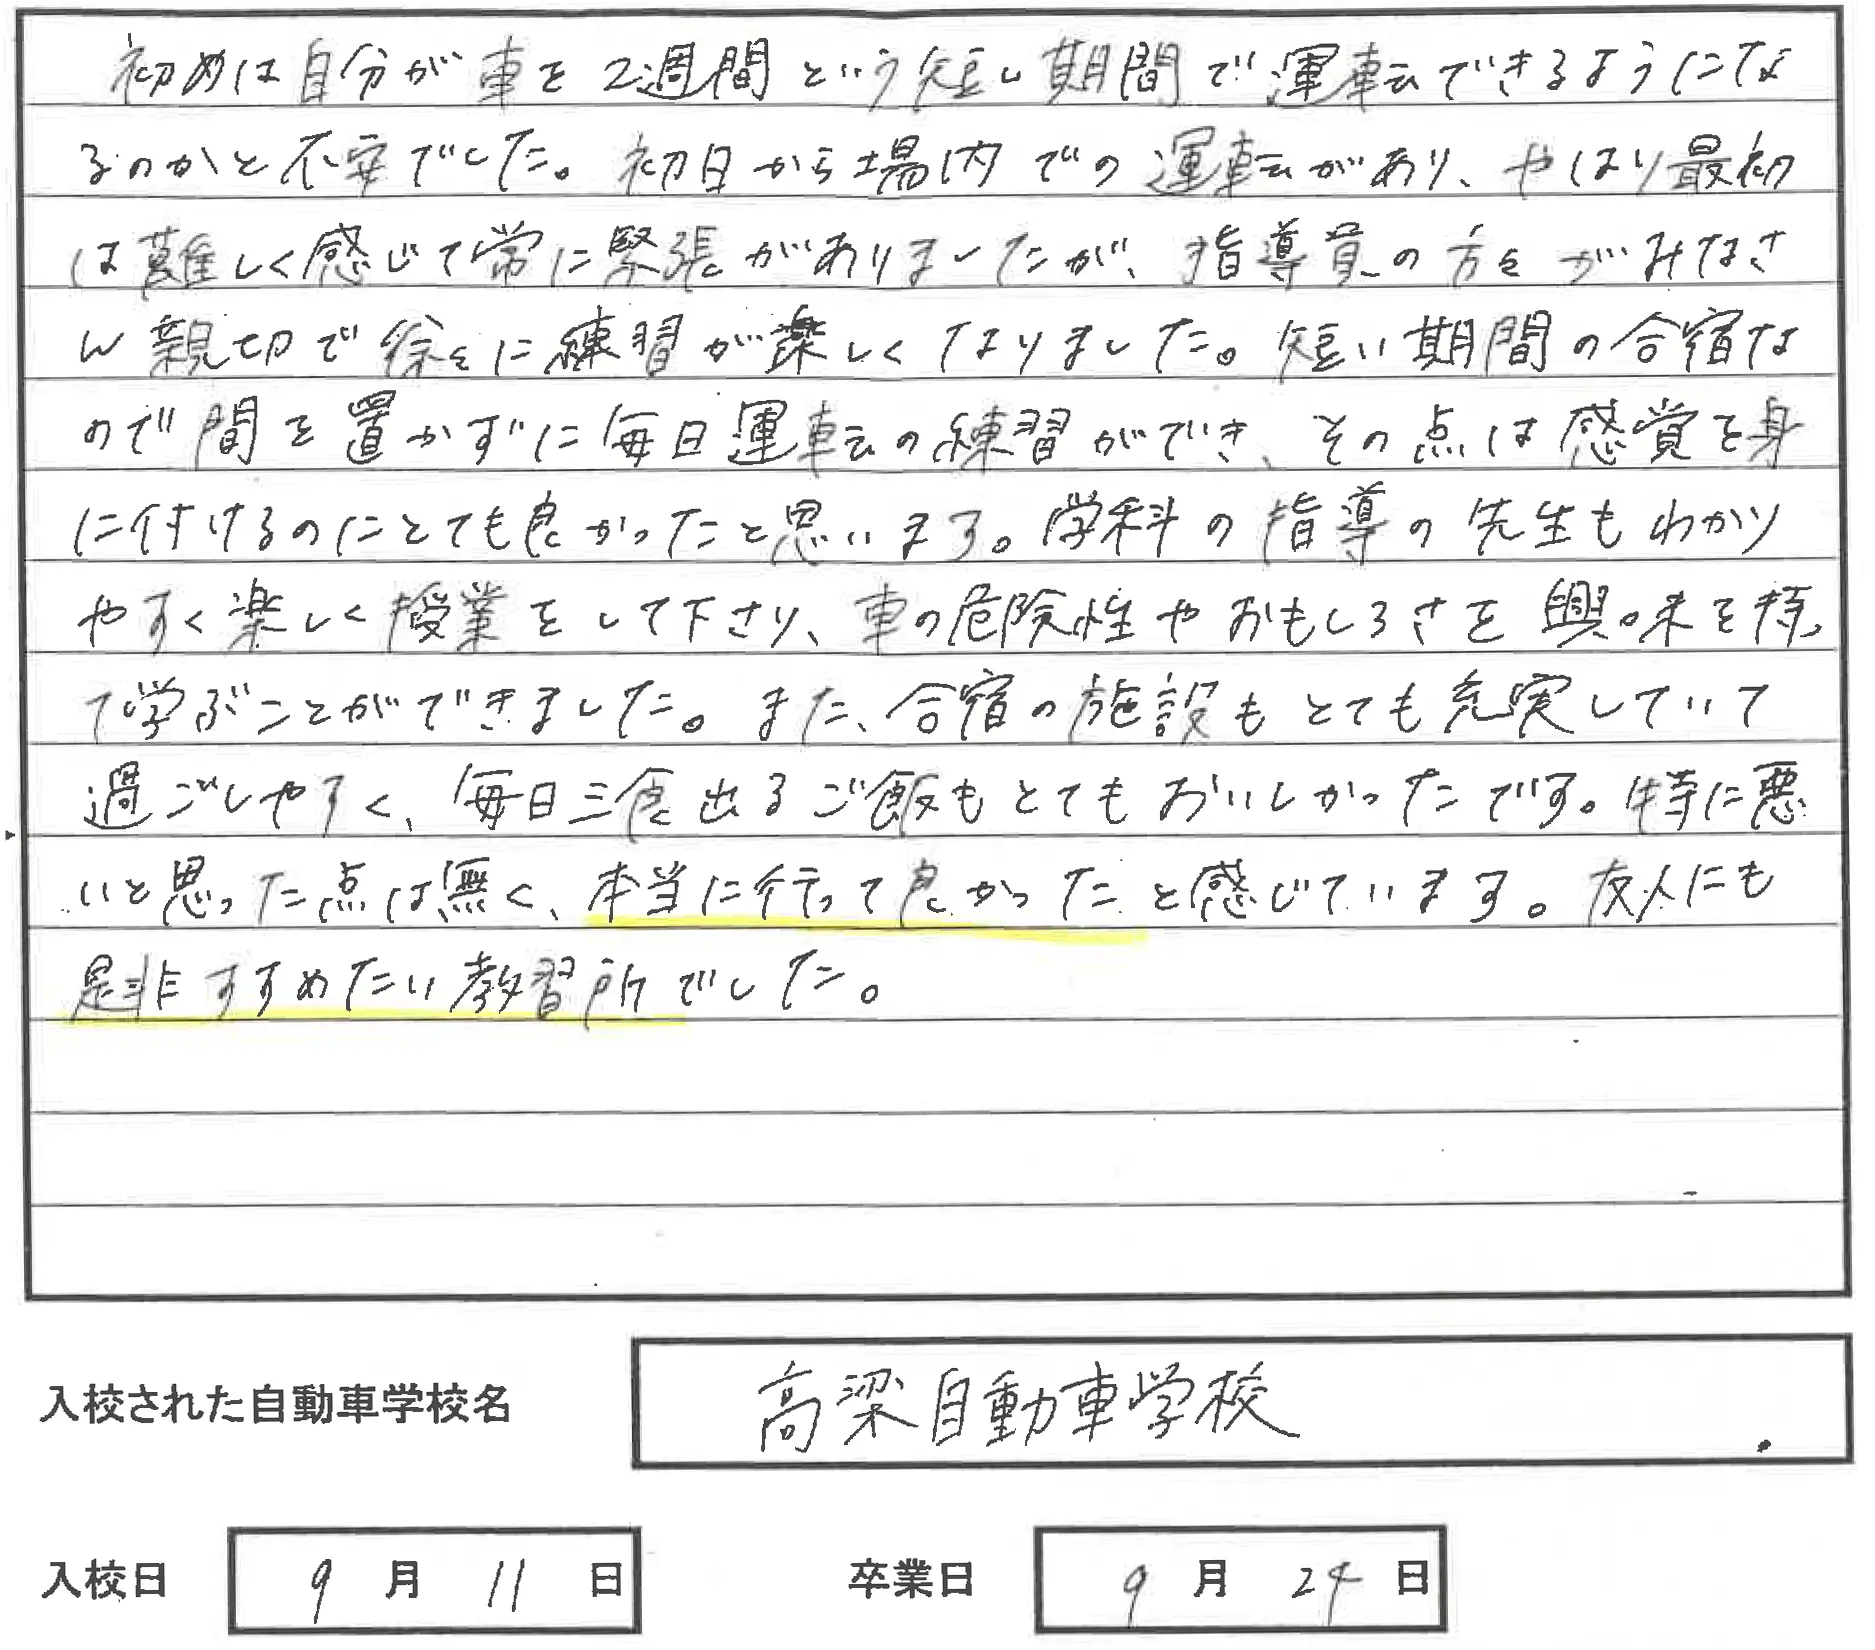 初めは自分が車を2週間という短い期間で運転できるようにな
るのかと不安でした。初日から場内での運転があり、やはり最初
は難しく感じて常に緊張がありましたが、指導員の方々がみなさ
ん親切で徐々に練習が楽しくなりました。短い期間の合宿な
ので間を置かずに毎日運転の練習ができ、その点は感覚を身
に付けるのにとても良かったと思います。学科の指導の先生もわかり
やすく楽しく授業をして下さり、車の危険性やおもしろさを興味を持っ
て学ぶことができました。また、合宿の施設もとても充実していて
過ごしやすく、毎日三食出るご飯もとてもおいしかったです。特に悪
いと思った点は無く、本当に行って良かったと感じています。友人にも
是非すすめたい教習所でした。
入校された自動車学校名 高梁自動車学校
入校日 9月11日 卒業日 9月24日